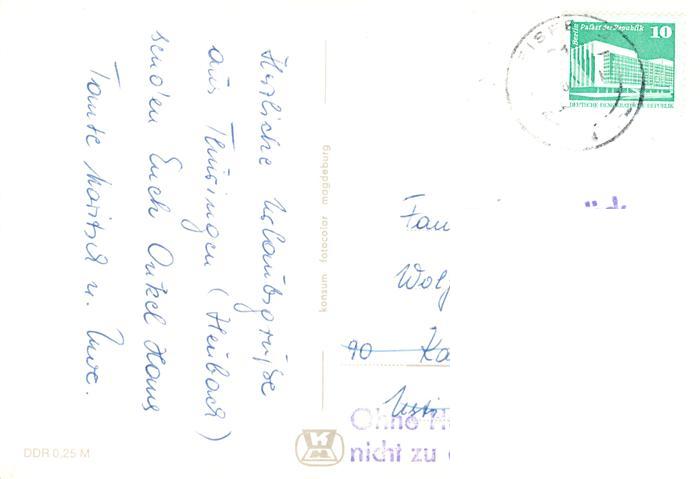 Herzliche Urlaubsgrüße
aus Thüringen (Heubach)
senden Euch Onkel Hans
Tante Maritta u. Uwe.
konsum fotocolor magdeburg
DDR 0,25 M
Berlin Palast der Republik 10
DEUTSCHE DEMOKRATISCHE REPUBLIK
EISF
Fam
Wolf
90 Ka
Ohne H
nicht zu